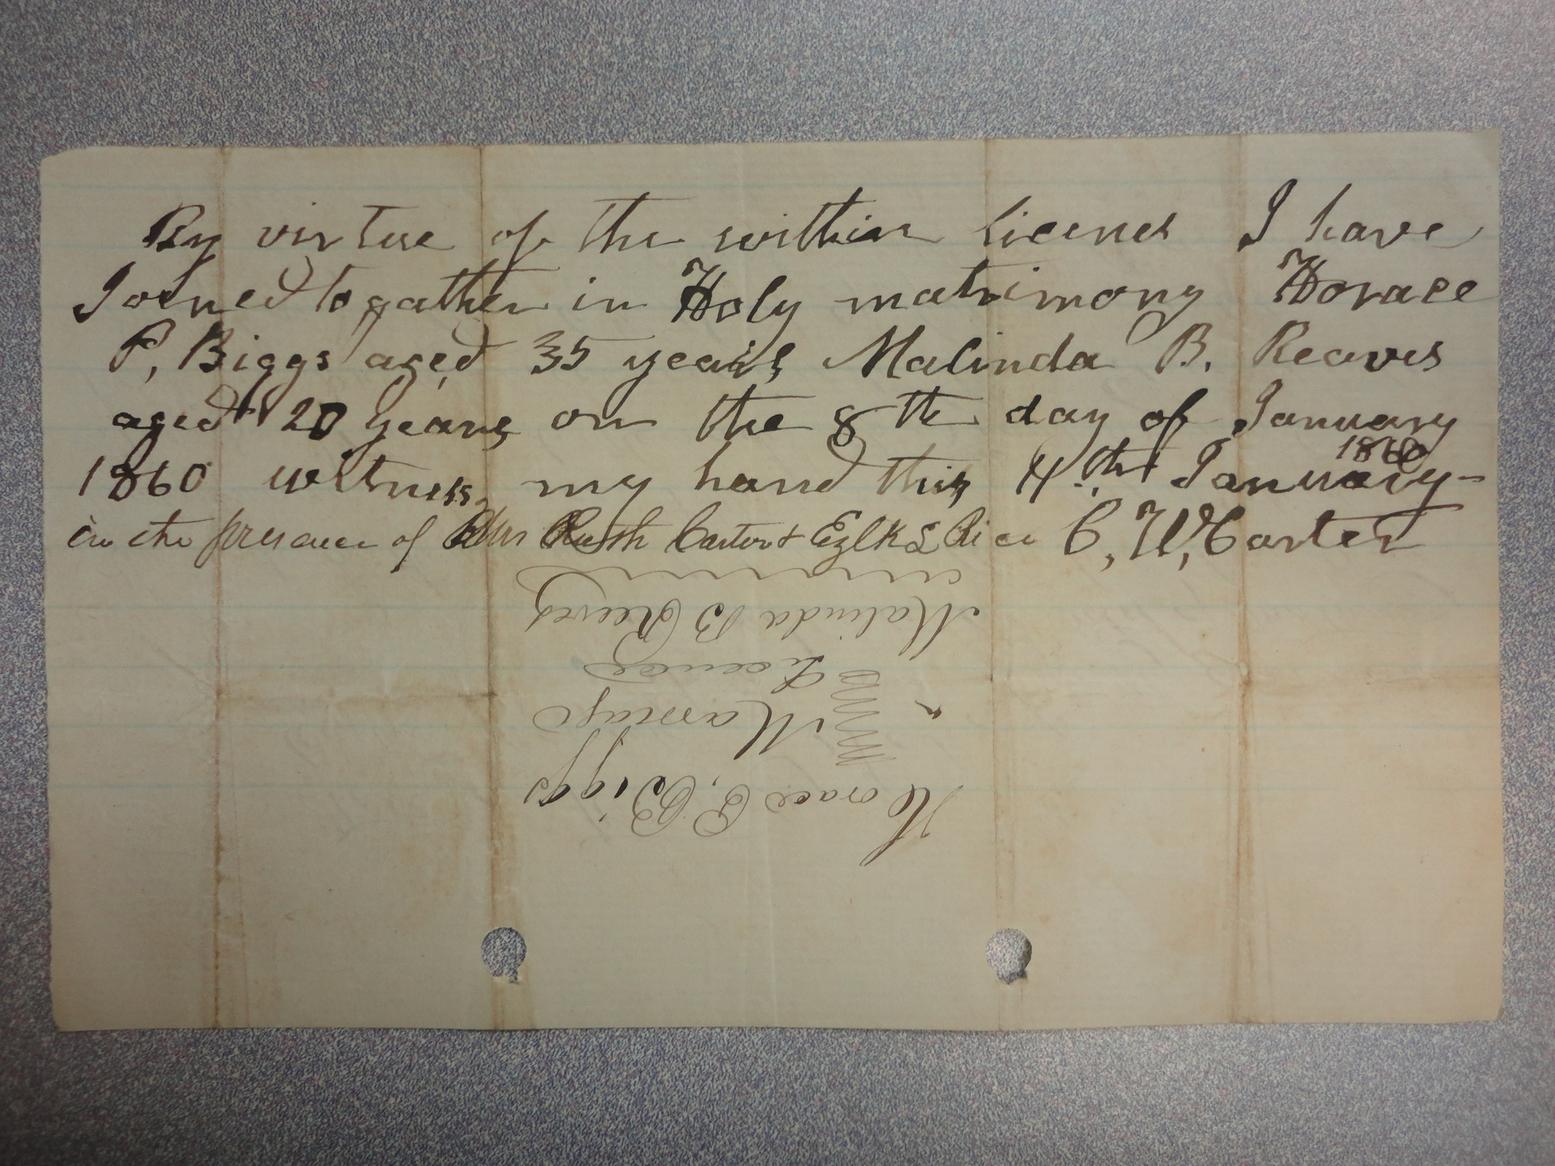 By virtue of the within licens I have
Joined togather in Holy matrimony Horace
P, Biggs aged 35 years Malinda B. Reaves
aged 20 years on the 8th day of January
1860 witness my hand this 4th January 1860
in the presence of Mrs Ruth Carter & C, W, Carter
Horace P. Biggs
Marriage
Licence
Malinda B Reeves